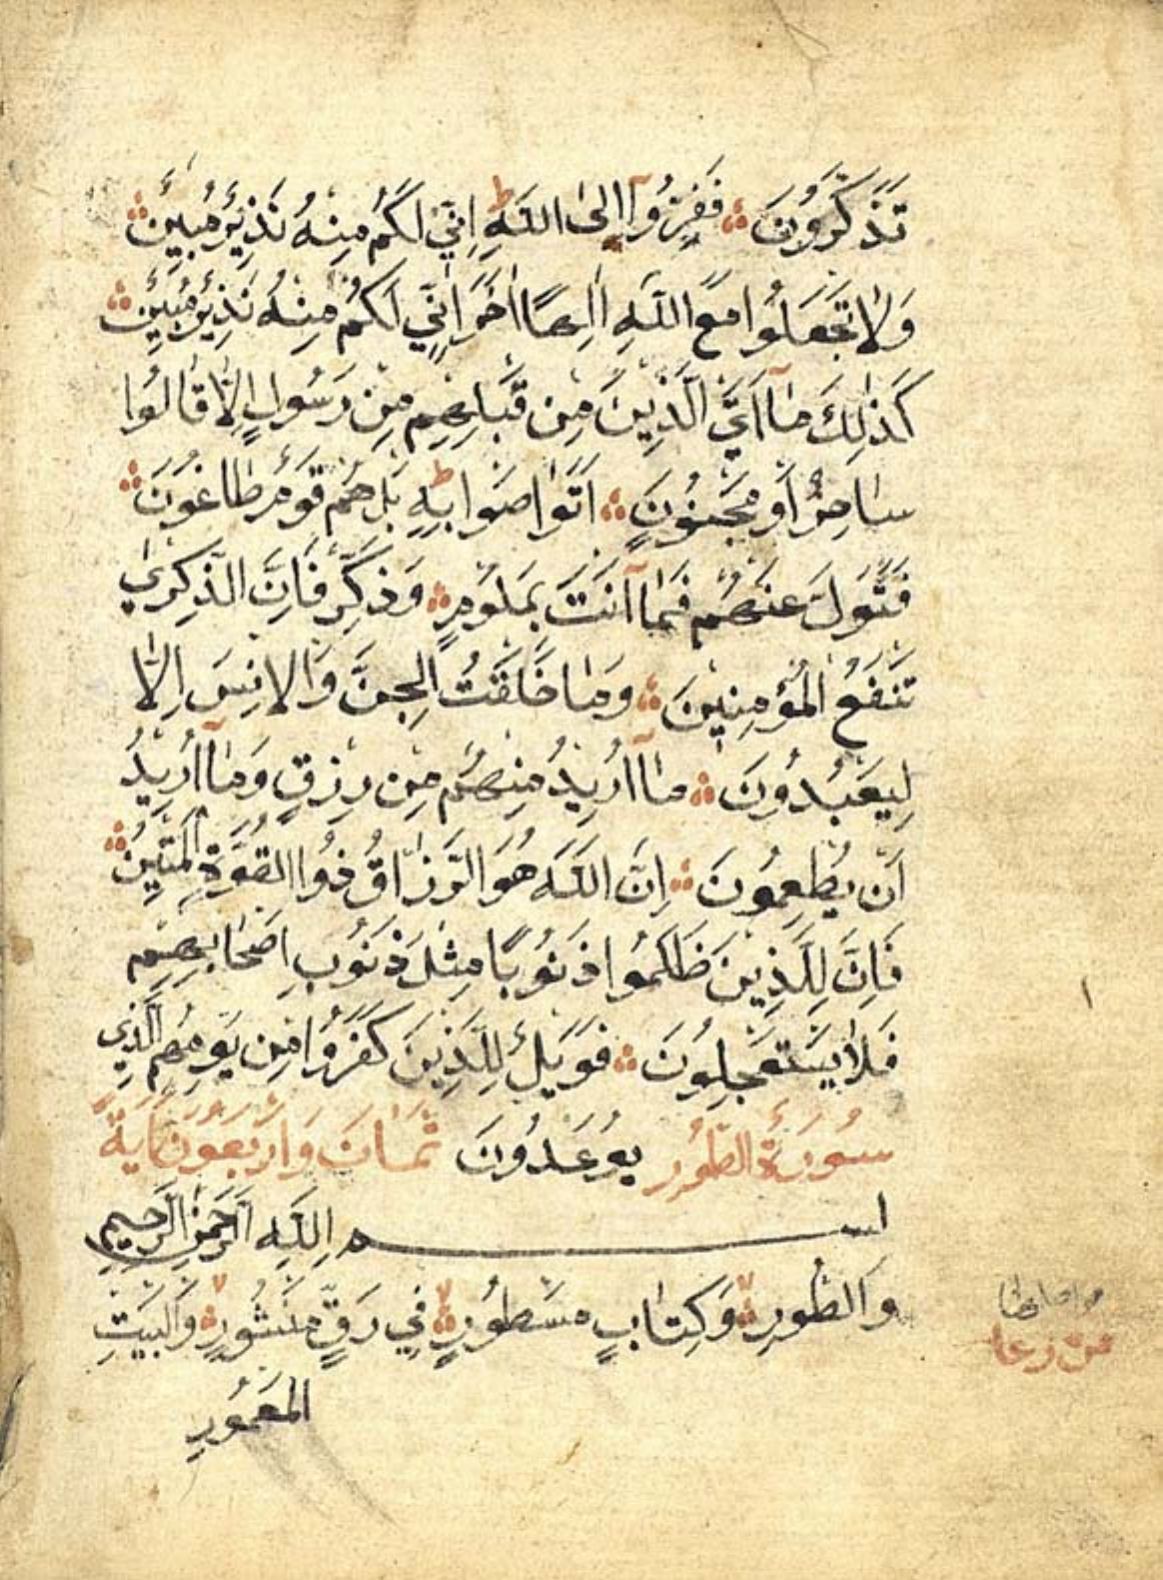 تَذَكَّرُونَ ۞ فَفِرُّوٓا اِلَى اللّٰهِ اِنّٖي لَكُمْ مِنْهُ نَذٖيرٌ مُبٖينٌ ۞
وَلَا تَجْعَلُوا مَعَ اللّٰهِ اِلٰهًا اٰخَرَ اِنّٖي لَكُمْ مِنْهُ نَذٖيرٌ مُبٖينٌ ۞
كَذٰلِكَ مَآ اَتَى الَّذٖينَ مِنْ قَبْلِهِمْ مِنْ رَسُولٍ اِلَّا قَالُوا
سَاحِرٌ اَوْ مَجْنُونٌ ۞ اَتَوَاصَوْا بِهٖ ط بَلْ هُمْ قَوْمٌ طَاغُونَ ۞
فَتَوَلَّ عَنْهُمْ فَمَآ اَنْتَ بِمَلُومٍ ۞ وَذَكِّرْ فَاِنَّ الذِّكْرٰى
تَنْفَعُ الْمُؤْمِنٖينَ ۞ وَمَا خَلَقْتُ الْجِنَّ وَالْاِنْسَ اِلَّا
لِيَعْبُدُونَ ۞ مَآ اُرٖيدُ مِنْهُمْ مِنْ رِزْقٍ وَمَآ اُرٖيدُ
اَنْ يُطْعِمُونَ ۞ اِنَّ اللّٰهَ هُوَ الرَّزَّاقُ ذُوا الْقُوَّةِ الْمَتٖينُ ۞
فَاِنَّ لِلَّذٖينَ ظَلَمُوا ذَنُوبًا مِثْلَ ذَنُوبِ اَصْحَابِهِمْ
فَلَا يَسْتَعْجِلُونَ ۞ فَوَيْلٌ لِلَّذٖينَ كَفَرُوا مِنْ يَوْمِهِمُ الَّذٖي
سُورَةُ الطُّورِ يُوعَدُونَ ثَمَانَ وَاَرْبَعُونَ اٰيَةً
بسم اللّٰهِ الرَّحْمٰنِ الرَّحٖيمِ
وَالطُّورِ ۞ وَكِتَابٍ مَسْطُورٍ ۞ فٖي رَقٍّ مَنْشُورٍ ۞ وَالْبَيْتِ
الْمَعْمُورِ
١